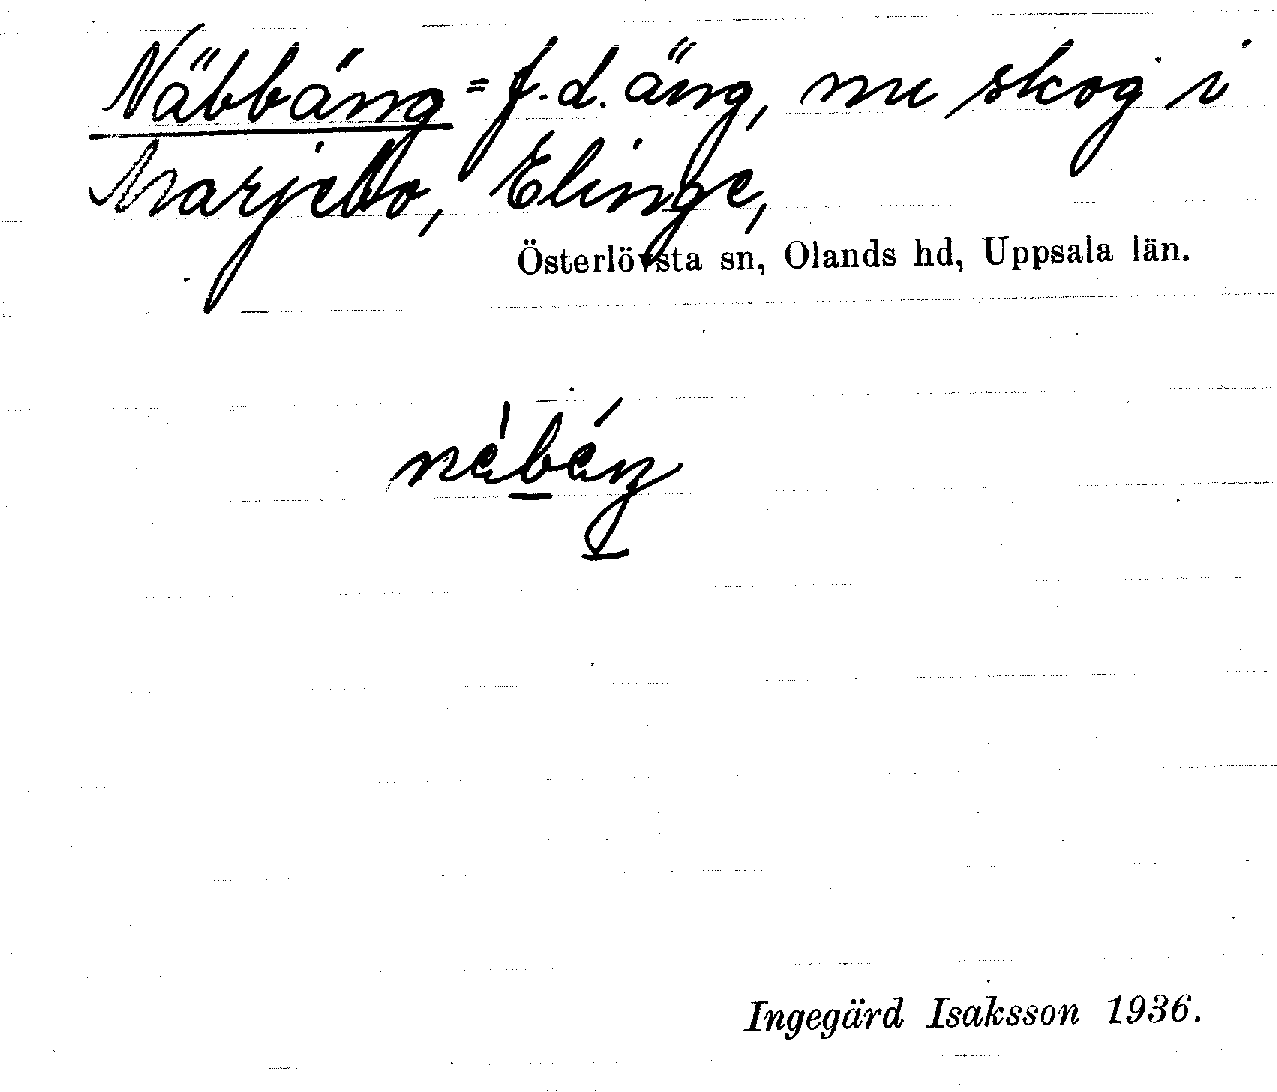 Näbbäng = f.d. äng, nu skog i
Marjebo, Elinge,
Österlövsta sn, Olands hd, Uppsala län.
Ingegärd Isaksson 1936.